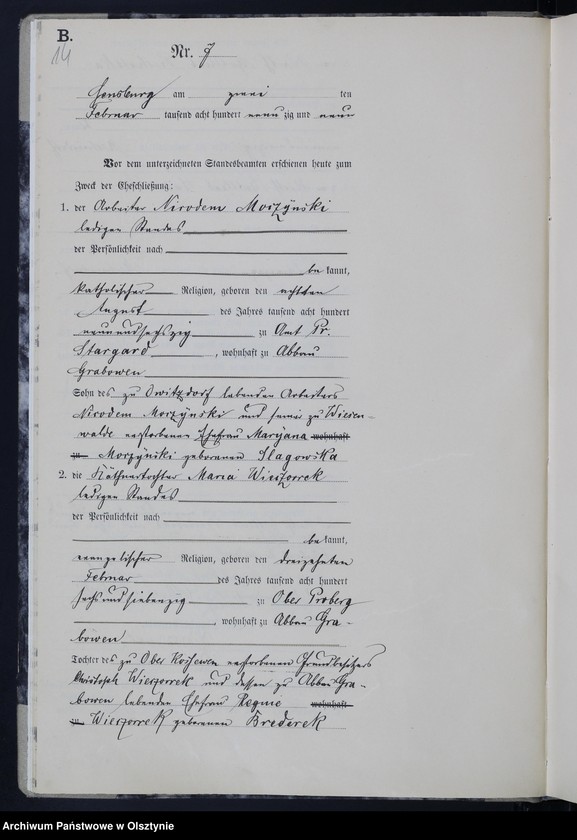 B.
14
Nr. 7
Sensburg am zwei ten
Februar tausend acht hundert neun zig und neun
Vor dem unterzeichneten Standesbeamten erschienen heute zum
Zweck der Eheschließung:
1. der Arbeiter Nicodem Morzÿnski
ledigen Standes
der Persönlichkeit nach
be kannt,
katholischer Religion, geboren den achten
August des Jahres tausend acht hundert
neunundsechszig zu Amt Pr.
Stargard, wohnhaft zu Abbau
Grabowen
Sohn des zu lebenden Arbeiters
Nicodem Morzÿnski und seiner zu Wiesen-
walde verstorbenen Ehefrau Maryana wohnhaft
zu Morzÿnski geborenen Slagowska
2. die Käthnertochter Maria Wieczorrek
ledigen Standes
der Persönlichkeit nach
be kannt,
evangelischer Religion, geboren den dreizehnten
Februar des Jahres tausend acht hundert
sechsundsiebenzig zu Ober Proberg
, wohnhaft zu Abbau Gra-
bowen
Tochter des zu Ober Kossewen verstorbenen Grundbesitzers
Christoph Wieczorrek und dessen zu Abbau Gra-
bowen lebenden Ehefrau Regine wohnhaft
zu Wieczorrek geborenen Brederek
Archiwum Państwowe w Olsztynie